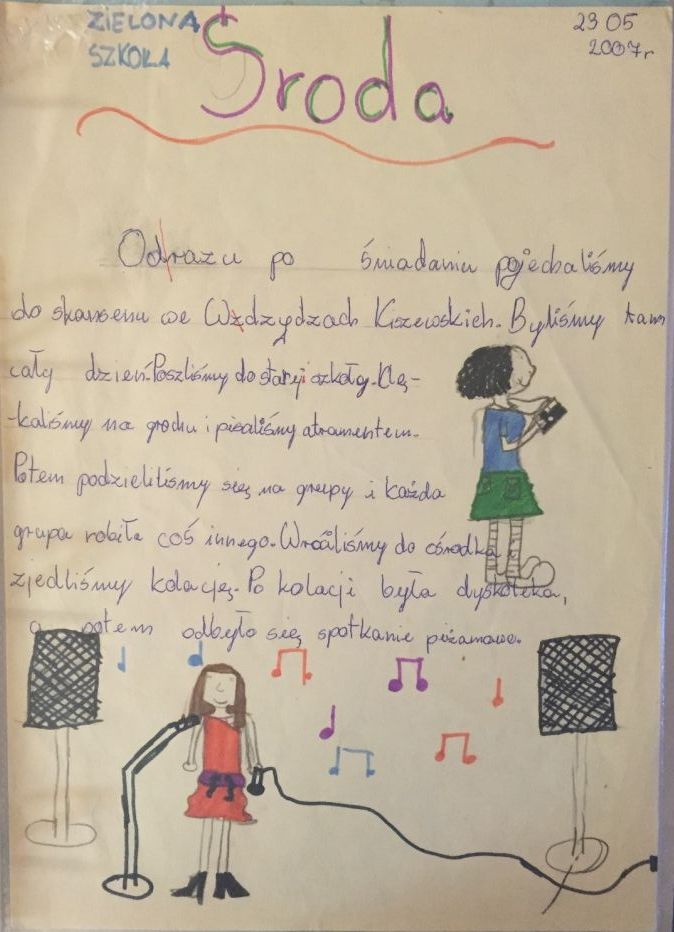 ZIELONA
SZKOŁA
Środa
23 05
2007r
Odrazu po śniadaniu pojechaliśmy
do skansenu we Wżdzydzach Kiszewskich. Byliśmy tam
cały dzień. Poszliśmy do starej szkoły. Klę-
-kaliśmy na grochu i pisaliśmy atramentem.
Potem podzieliliśmy się na grupy i każda
grupa robiła coś innego. Wróciliśmy do ośrodka i
zjedliśmy kolację. Po kolacji była dyskoteka,
a potem odbyło się spotkanie piżamowe.